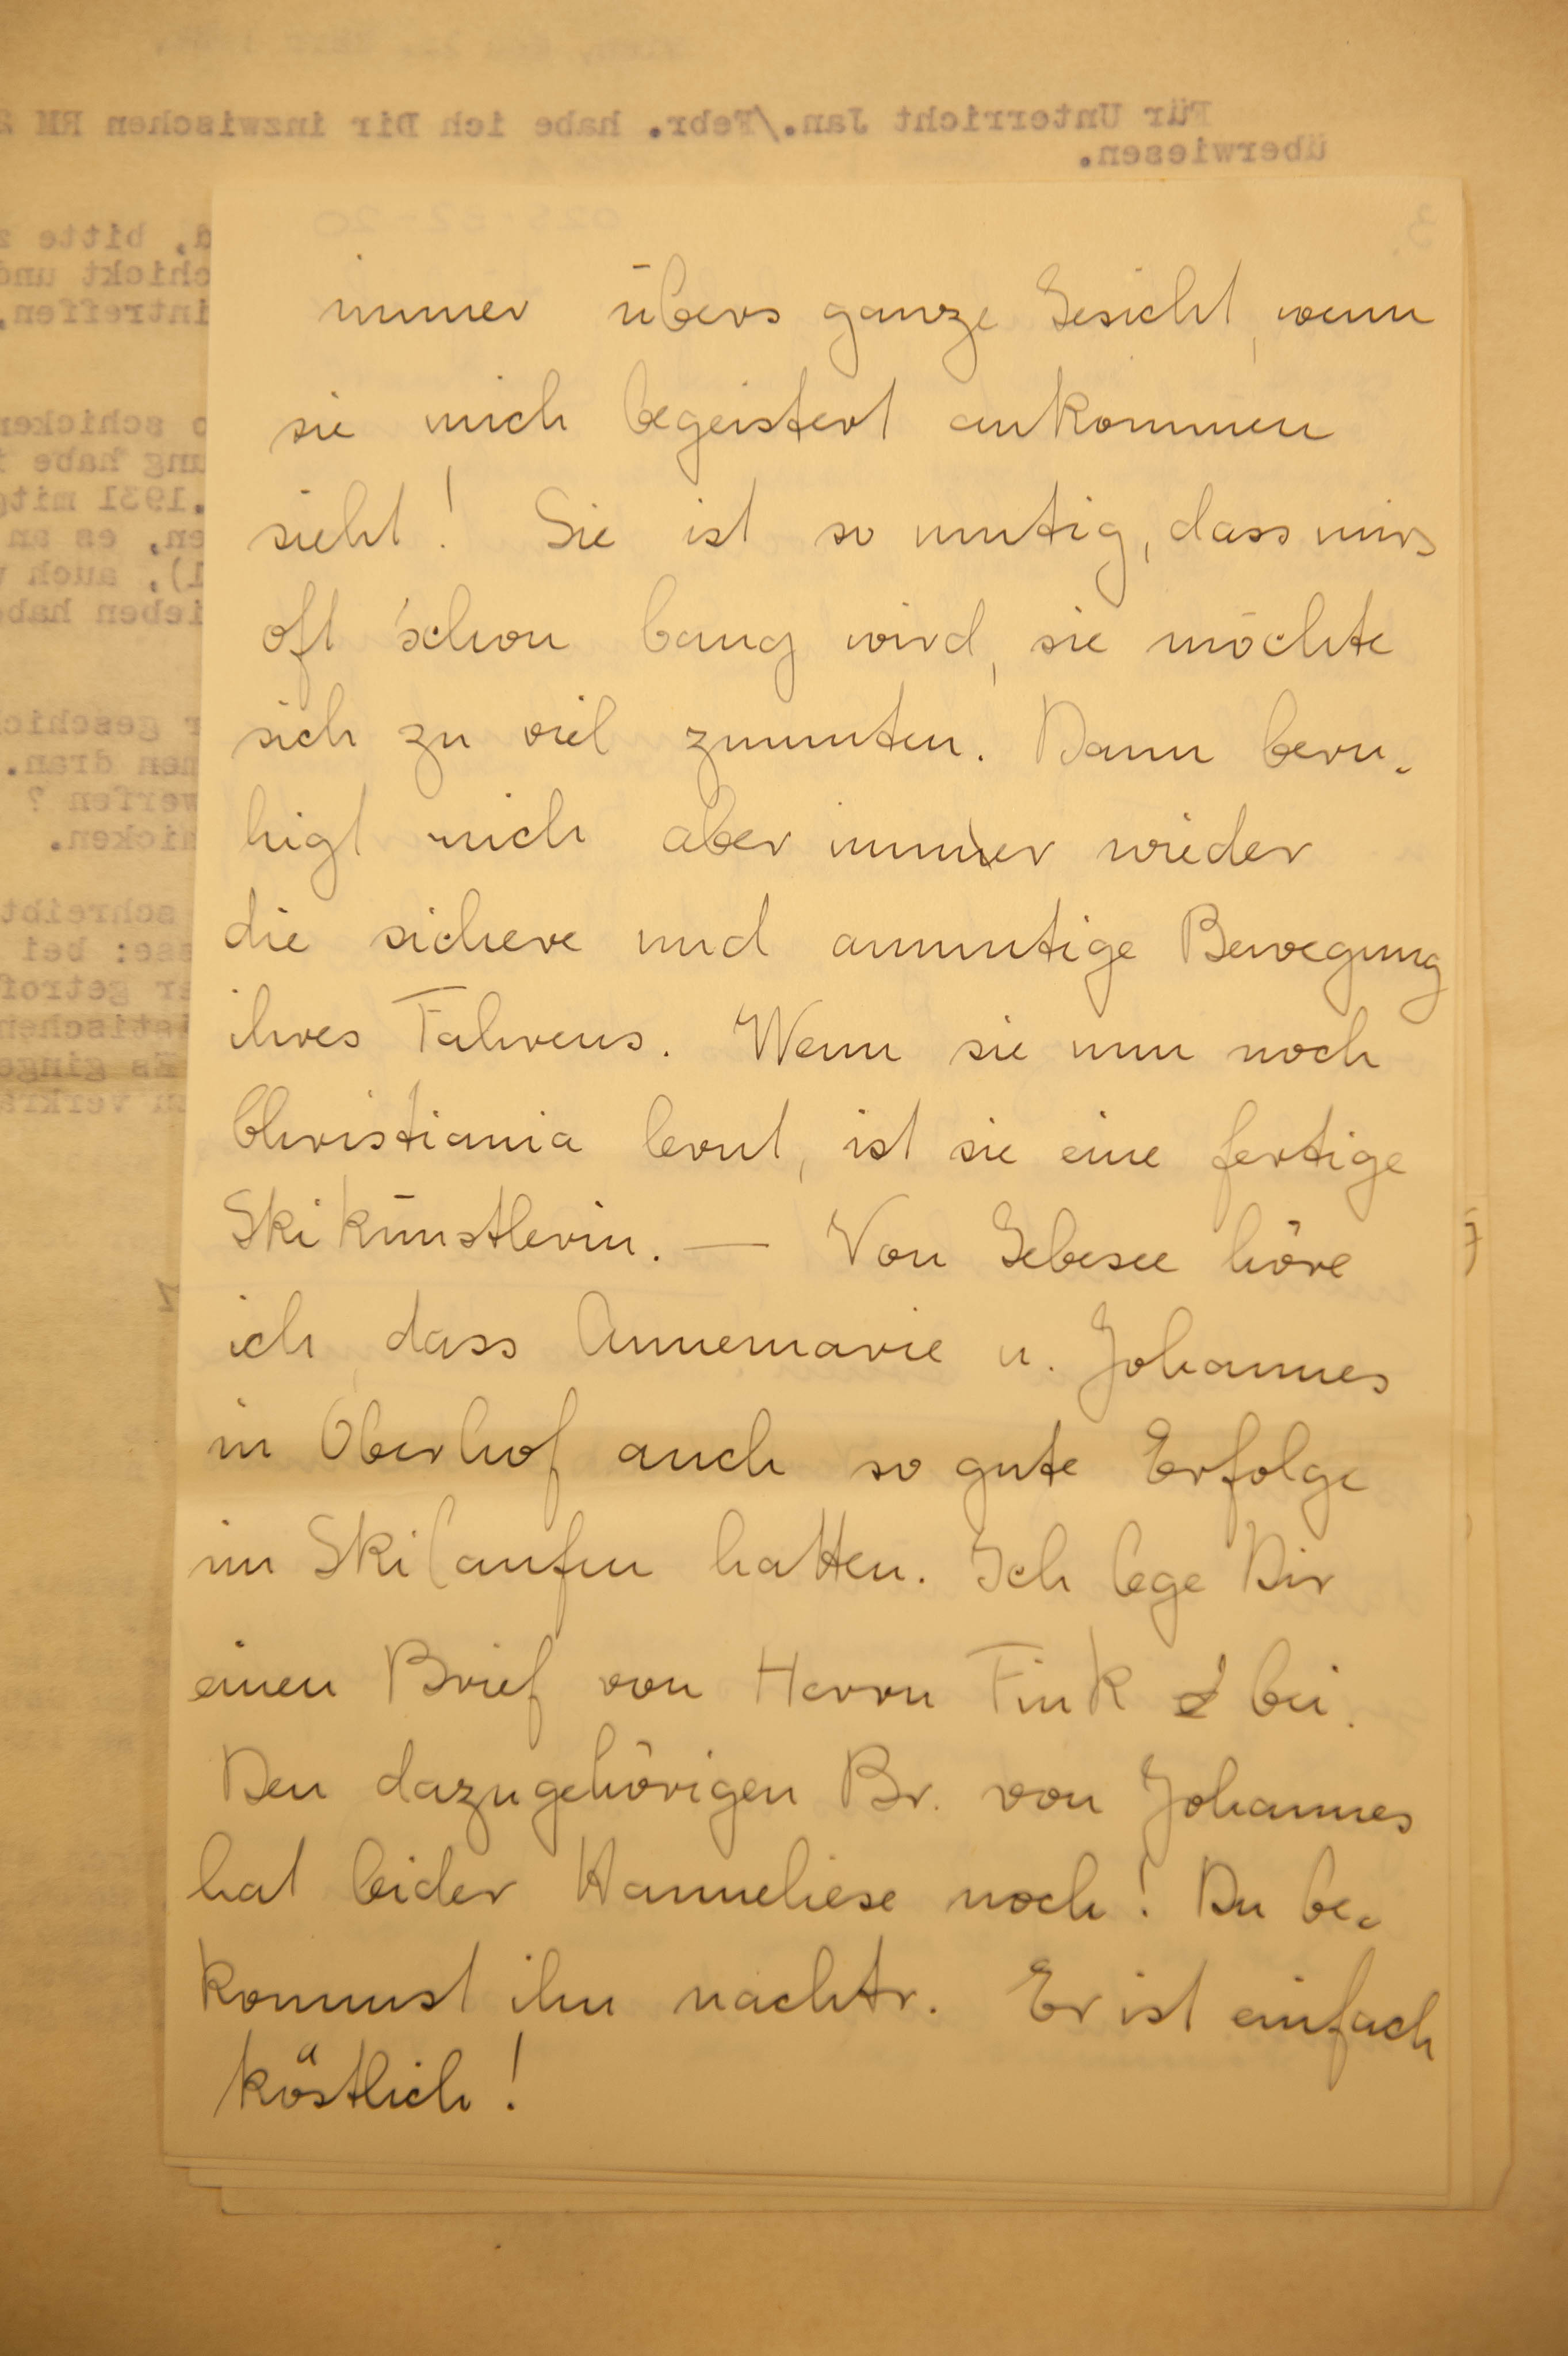 Für Unterricht Jan./Febr. habe ich Dir inzwischen RM
überwiesen.
bitte
intreffen,
.1931
en, es an
auch
ieben
dran.
werfen ?
schreibt
bei
immer übers ganze Gesicht, wenn
sie mich begeistert ankommen
sieht! Sie ist so mutig, dass mirs
oft schon bang wird, sie möchte
sich zu viel zumuten. Dann beru-
higt mich aber immer wieder
die sichere und anmutige Bewegung
ihres Fahrens. Wenn sie nun noch
Christiania lernt, ist sie eine fertige
Skikünstlerin. — Von Gebesee höre
ich, dass Annemarie u. Johannes
in Oberhof auch so gute Erfolge
im Skilaufen hatten. Ich lege Dir
einen Brief von Herrn Fink bei.
Den dazugehörigen Br. von Johannes
hat leider Hanneliese noch! Du be-
kommst ihn nachtr. Er ist einfach
köstlich!